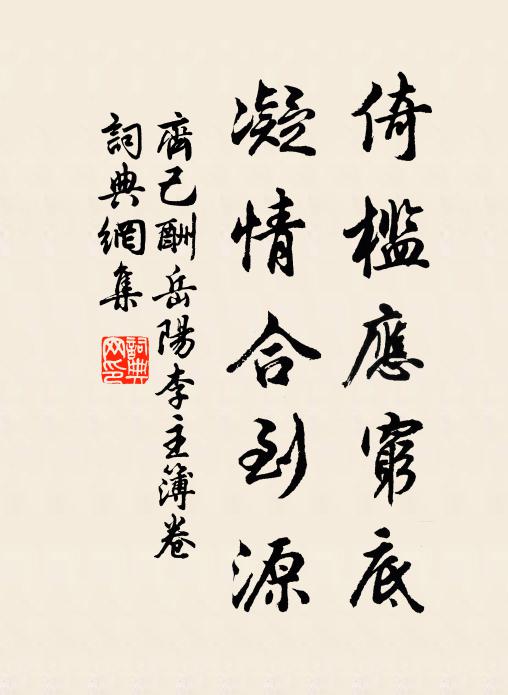 倚檻應窮底
凝情合到源
齊己酬岳陽李主簿卷
詞典網集
詞典網印